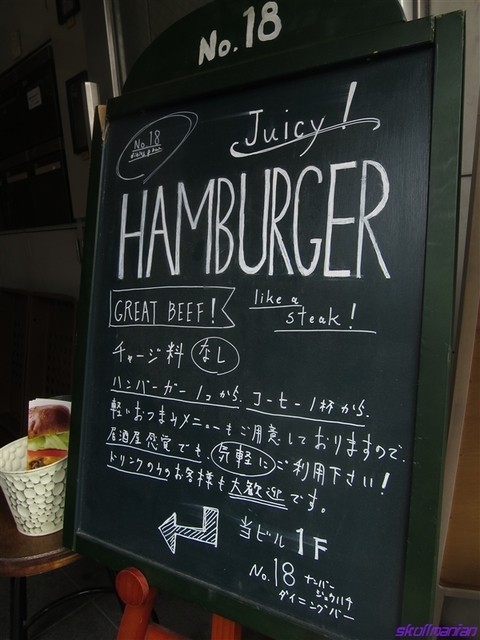 No. 18
No.18
dining & bar
Juicy!
HAMBURGER
GREAT BEEF!
like a
steak!
チャージ料 なし
ハンバーガー1つから、コーヒー1杯から。
軽いおつまみメニューもご用意しておりますので、
居酒屋感覚でも、気軽にご利用下さい!
ドリンクのみのお客様も大歓迎です。
当ビル 1F
No.18 ナンバー
ジュウハチ
ダイニングバー
skullmanian